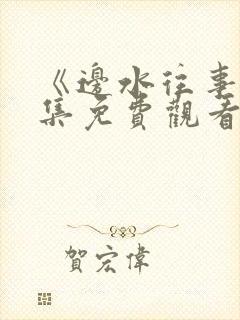 《邊水往事
集免費觀看
賀宏偉